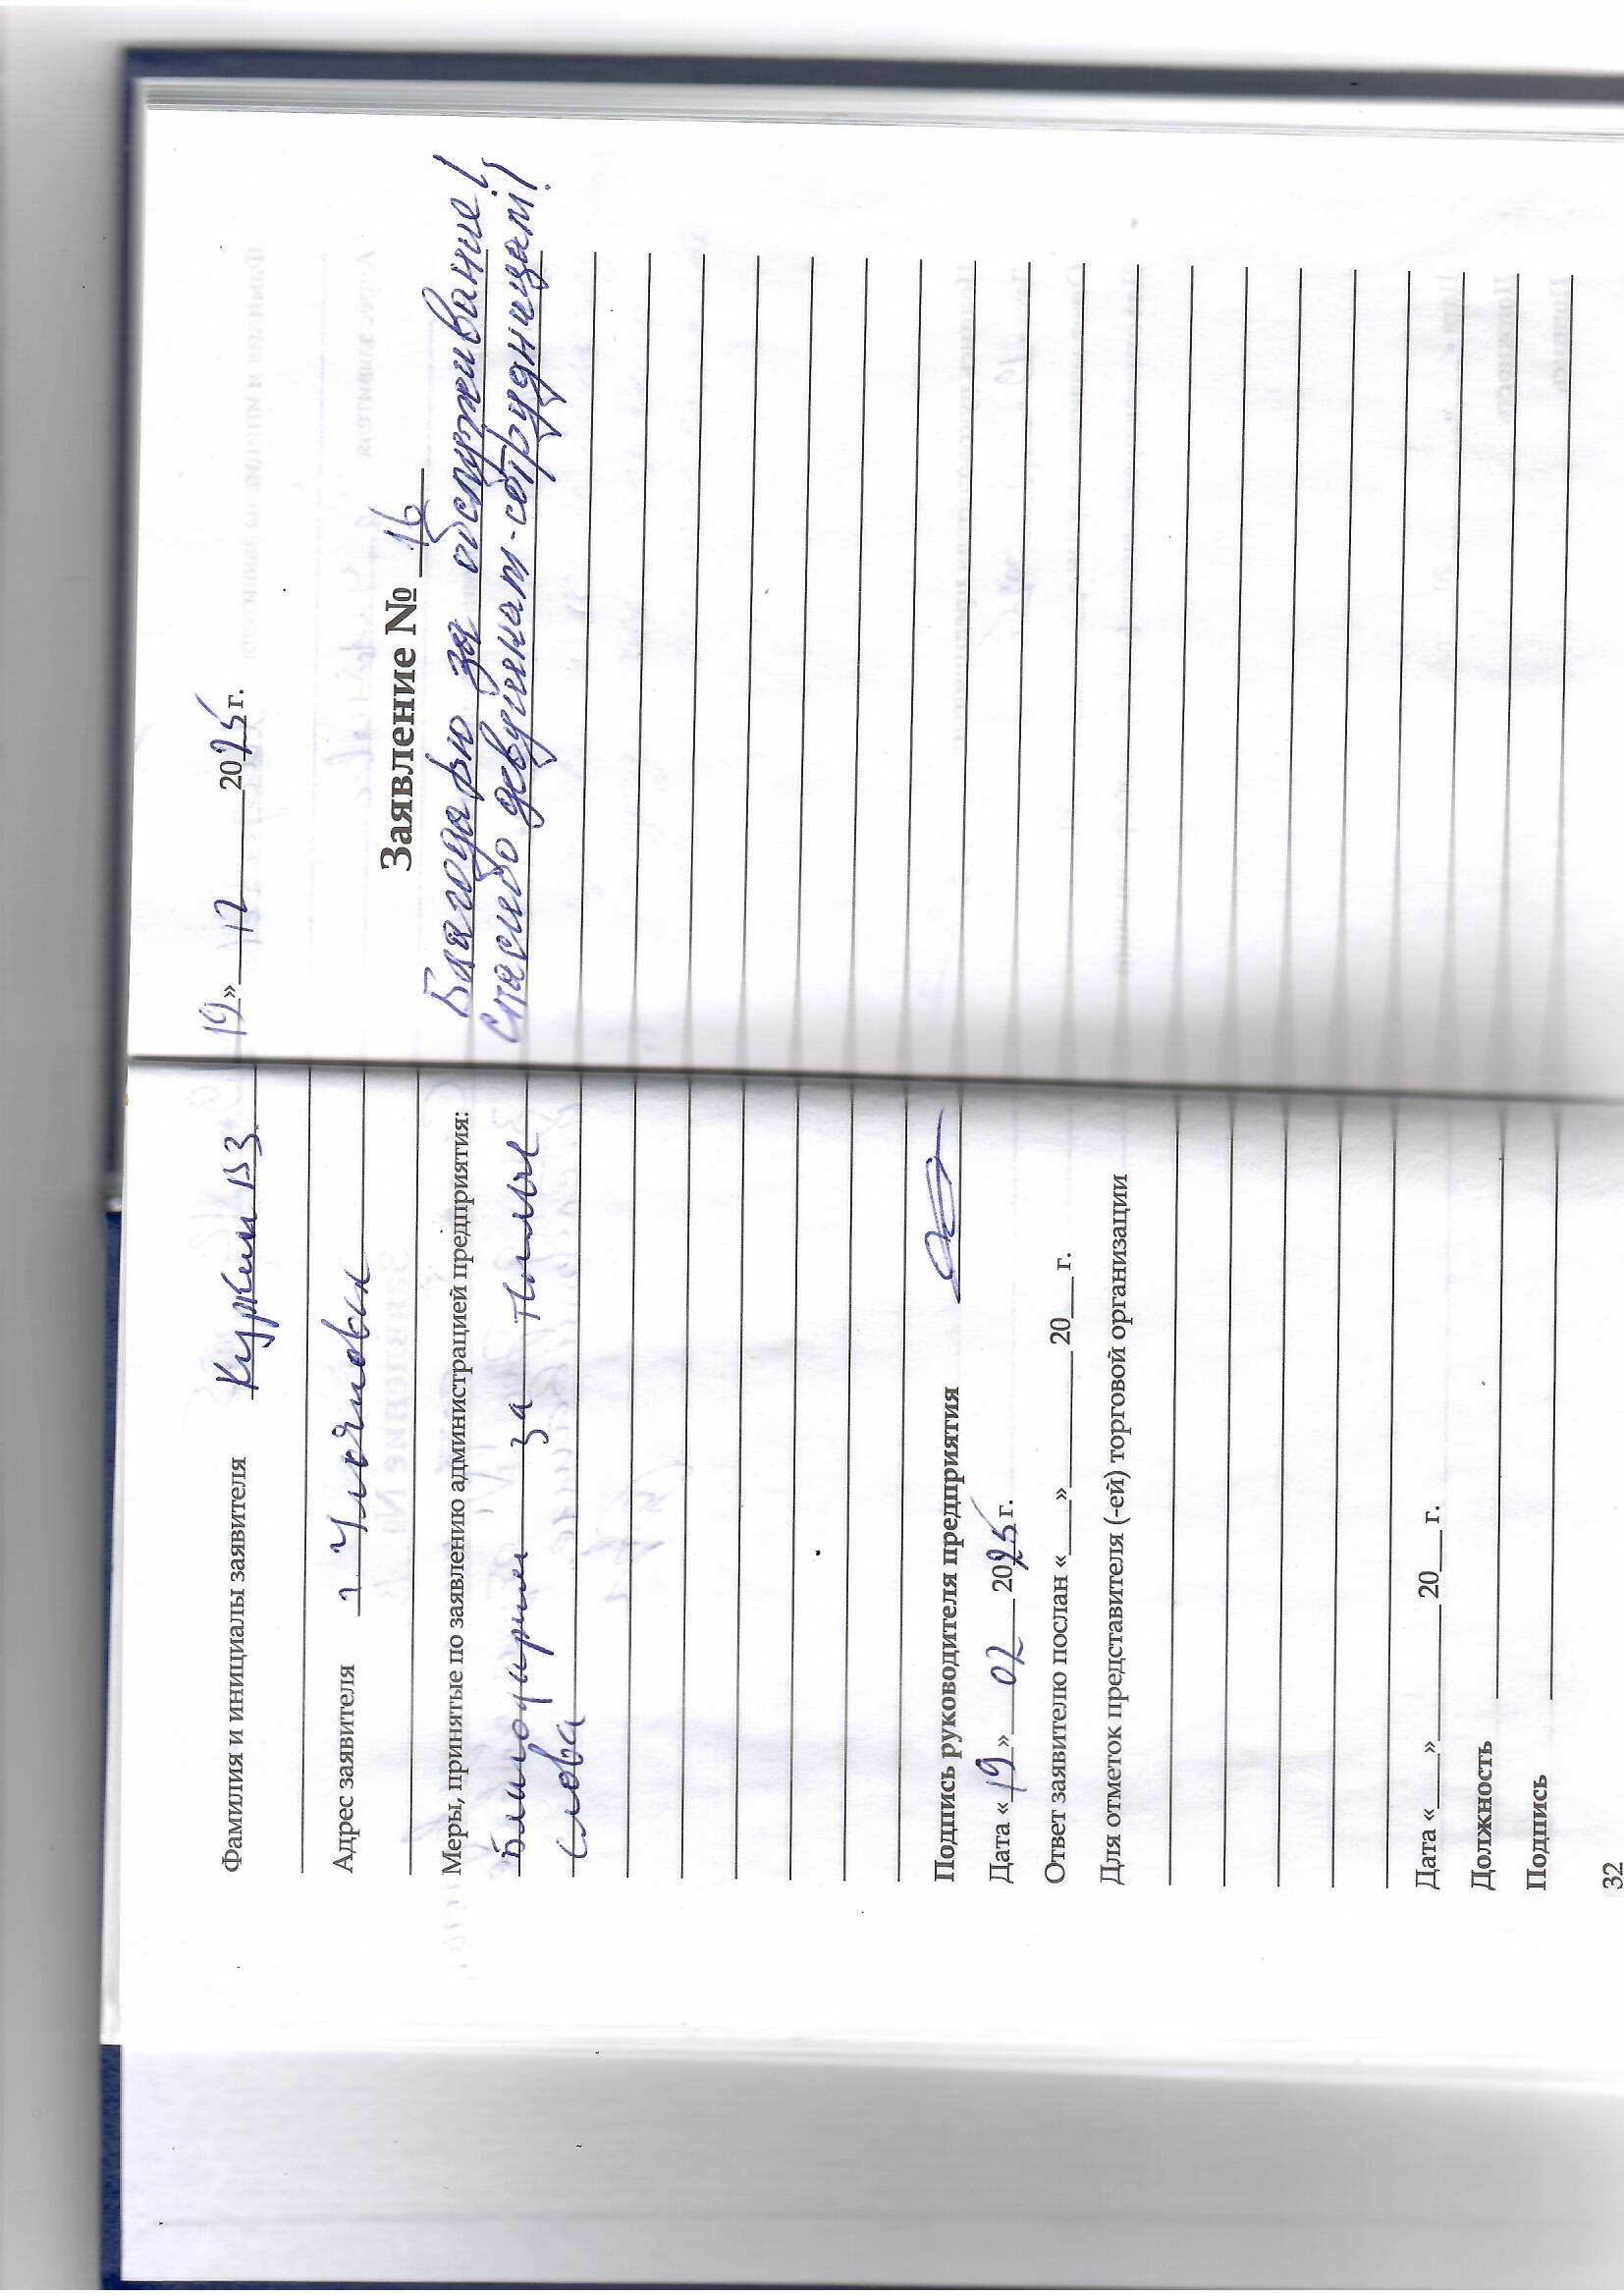 Фамилия и инициалы заявителя Куркин В З
Адрес заявителя г
Меры, принятые по заявлению администрацией предприятия:
Благодарим за
слова
Подпись руководителя предприятия
Дата «19» 02 2025 г.
Ответ заявителю послан «___» ______ 20___ г.
Для отметок представителя (-ей) торговой организации
Дата «___» ______ 20___ г.
Должность
Подпись
32
19» 12 2025 г.
Заявление № 16
Благодарю за обслуживание!
Спасибо девушкам-сотрудницам!